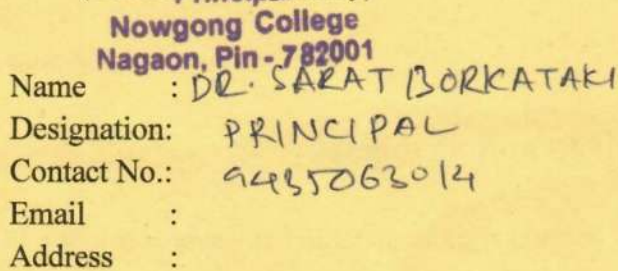 Nowgong College
Nagaon, Pin - 782001
Name : DR. SARAT BORKATAKI
Designation: PRINCIPAL
Contact No.: 9435063014
Email :
Address :